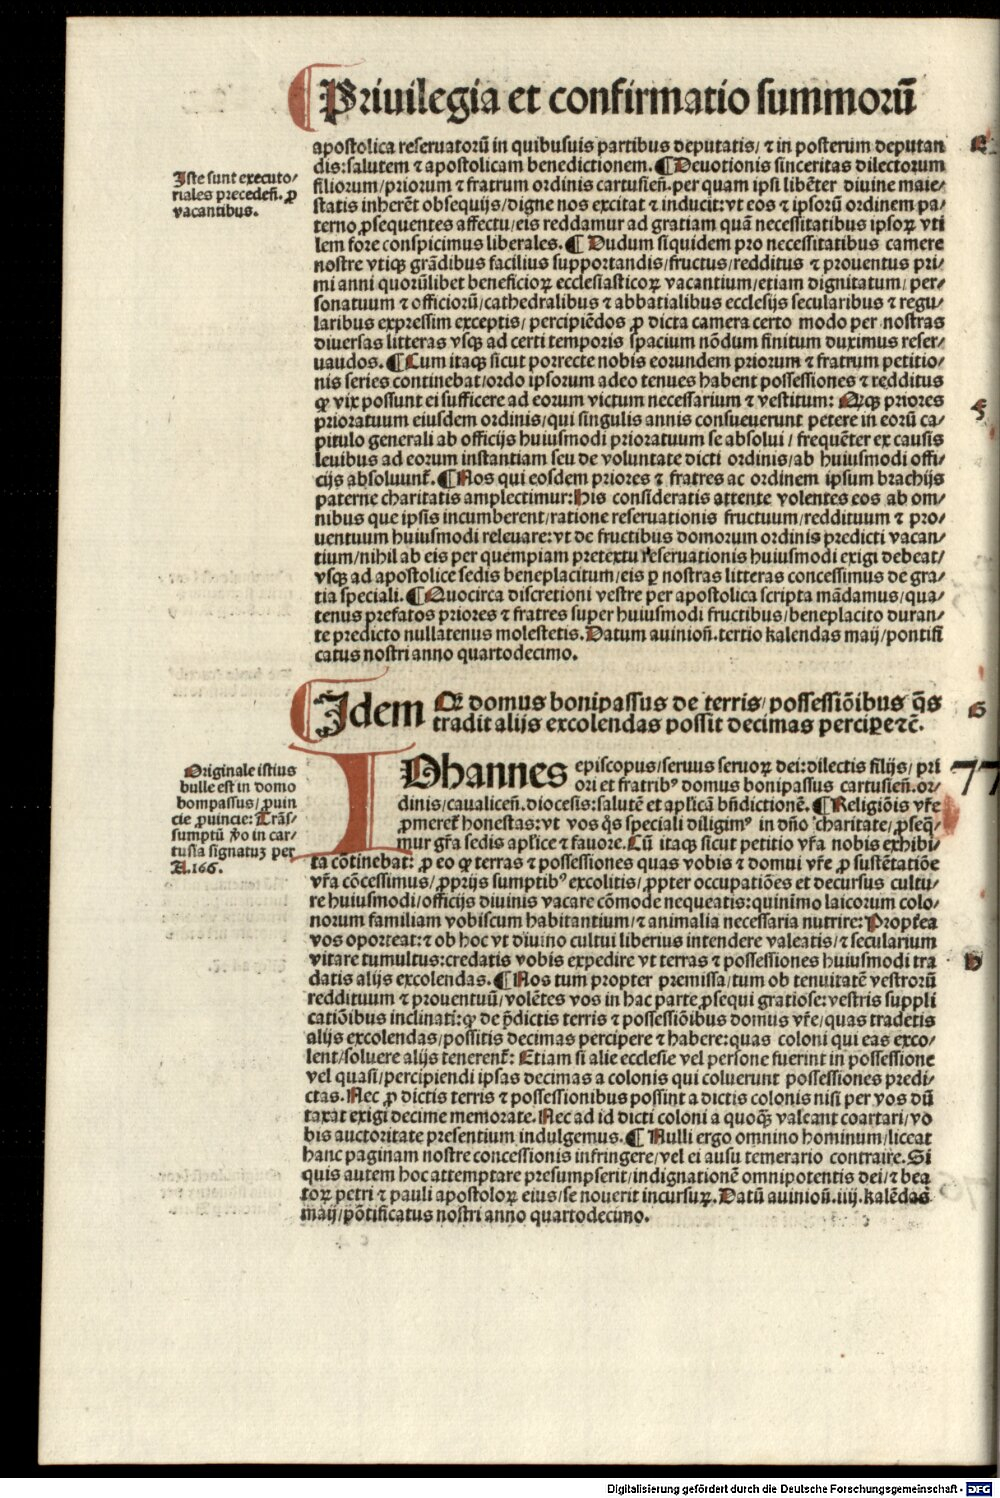 Priuilegia et confirmatio summorū
apostolica reseruatorū in quibusuis partibus deputatis/ ⁊ in posterum deputan
dis:salutem ⁊ apostolicam benedictionem. ¶ Deuotionis sinceritas dilectorum
filiorum/priorum ⁊ fratrum ordinis cartusien̄.per quam ipsi libēter diuine maie/
statis inherēt obsequijs/digne nos excitat ⁊ inducit:vt eos ⁊ ipsorū ordinem pa/
terno ꝓsequentes affectu/eis reddamur ad gratiam quā necessitatibus ipsoꝝ vti
lem fore conspicimus liberales. ¶ Dudum siquidem pro necessitatibus camere
nostre vtiqꝫ grādibus facilius supportandis/fructus/redditus ⁊ prouentus pri/
mi anni quorūlibet beneficioꝝ ecclesiasticoꝝ vacantium/etiam dignitatum/ per/
sonatuum ⁊ officiorū/cathedralibus ⁊ abbatialibus ecclesijs secularibus ⁊ regu/
laribus expressim exceptis/ percipiēdos ꝓ dicta camera certo modo per nostras
diuersas litteras vsqꝫ ad certi temporis spacium nōdum finitum duximus reser/
uaudos. ¶ Cum itaqꝫ sicut porrecte nobis eorundem priorum ⁊ fratrum petitio/
nis series continebat/ordo ipsorum adeo tenues habent possessiones ⁊ redditus
ꝙ vix possunt ei sufficere ad eorum victum necessarium ⁊ vestitum: Qꝫqꝫ priores
prioratuum eiusdem ordinis/qui singulis annis consueuerunt petere in eorū ca/
pitulo generali ab officijs huiusmodi prioratuum se absolui / frequēter ex causis
leuibus ad eorum instantiam seu de voluntate dicti ordinis/ab huiusmodi offi/
cijs absoluunt̄. ¶ Nos qui eosdem priores ⁊ fratres ac ordinem ipsum brachijs
paterne charitatis amplectimur:His consideratis attente volentes eos ab om/
nibus que ipsis incumberent/ratione reseruationis fructuum/reddituum ⁊ pro/
uentuum huiusmodi releuare:vt de fructibus domorum ordinis predicti vacan/
tium/nihil ab eis per quempiam pretextu reseruationis huiusmodi exigi debeat/
vsqꝫ ad apostolice sedis beneplacitum/eis ꝑ nostras litteras concessimus de gra/
tia speciali. ¶ Quocirca discretioni vestre per apostolica scripta mādamus/qua/
tenus prefatos priores ⁊ fratres super huiusmodi fructibus/beneplacito duran/
te predicto nullatenus molestetis. Datum auinion̄.tertio kalendas maij/pontifi
catus nostri anno quartodecimo.
Iste sunt executo/
riales preceden̄. ꝓ
vacantibus.
Idem Qꝫ domus bonipassus de terris/ possessiōibus q̄s
tradit alijs excolendas possit decimas perciperꝛc̄.
IOhannes episcopus/seruus seruoꝝ dei:dilectis filijs/ pri
ori et fratribꝰ domus bonipassus cartusien̄.or/
dinis/caualicen̄.diocesis:salutē et apl̄icā bn̄dictionē. ¶ Religiōis vr̄e
ꝓmeret̄ honestas:vt vos q̄s speciali diligimꝰ in dn̄o charitate/ ꝓseq̄/
mur gr̄a sedis apl̄ice ⁊ fauore. Cū itaqꝫ sicut petitio vr̄a nobis exhibi/
ta cōtinebat: ꝓ eo ꝙ terras ⁊ possessiones quas vobis ⁊ domui vr̄e ꝓ sustētatiōe
vr̄a cōcessimus/ꝓprijs sumptibꝰ excolitis/ꝓpter occupatiōes et decursus cultu/
re huiusmodi/officijs diuinis vacare cōmode nequeatis:quinimo laicorum colo/
norum familiam vobiscum habitantium/⁊ animalia necessaria nutrire: Propt̄ea
vos oporteat:⁊ ob hoc vt diuino cultui liberius intendere valeatis/⁊ secularium
vitare tumultus:credatis vobis expedire vt terras ⁊ possessiones huiusmodi tra
datis alijs excolendas. ¶ Nos tum propter premissa/tum ob tenuitatē vestrorū
reddituum ⁊ prouentuū/volētes vos in hac parte ꝓsequi gratiose:vestris suppli
catiōibus inclinati:ꝙ de p̄dictis terris ⁊ possessiōibus domus vr̄e/quas tradetis
alijs excolendas/possitis decimas percipere ⁊ habere:quas coloni qui eas exco/
lent/soluere alijs tenerent̄: Etiam si alie ecclesie vel persone fuerint in possessione
vel quasi/percipiendi ipsas decimas a colonis qui coluerunt possessiones predi/
ctas. Nec ꝓ dictis terris ⁊ possessionibus possint a dictis colonis nisi per vos dū
taxat exigi decime memorate. Nec ad id dicti coloni a quoqꝫ valeant coartari/vo
bis auctoritate presentium indulgemus. ¶ Nulli ergo omnino hominum/liceat
hanc paginam nostre concessionis infringere/vel ei ausu temerario contraire. Si
quis autem hoc attemptare presumpserit/indignationē omnipotentis dei/⁊ bea
toꝝ petri ⁊ pauli apostoloꝝ eius/se nouerit incursuꝝ. Datū auinion̄.iiij.kalēdas
maij/pōtificatus nostri anno quartodecimo.
Originale istius
bulle est in domo
bompassus/ꝓuin
cie ꝓuincie: Trās/
sumptū v̄o in car/
tusia signatuꝫ per
A.166.
77
Digitalisierung gefördert durch die Deutsche Forschungsgemeinschaft - DFG